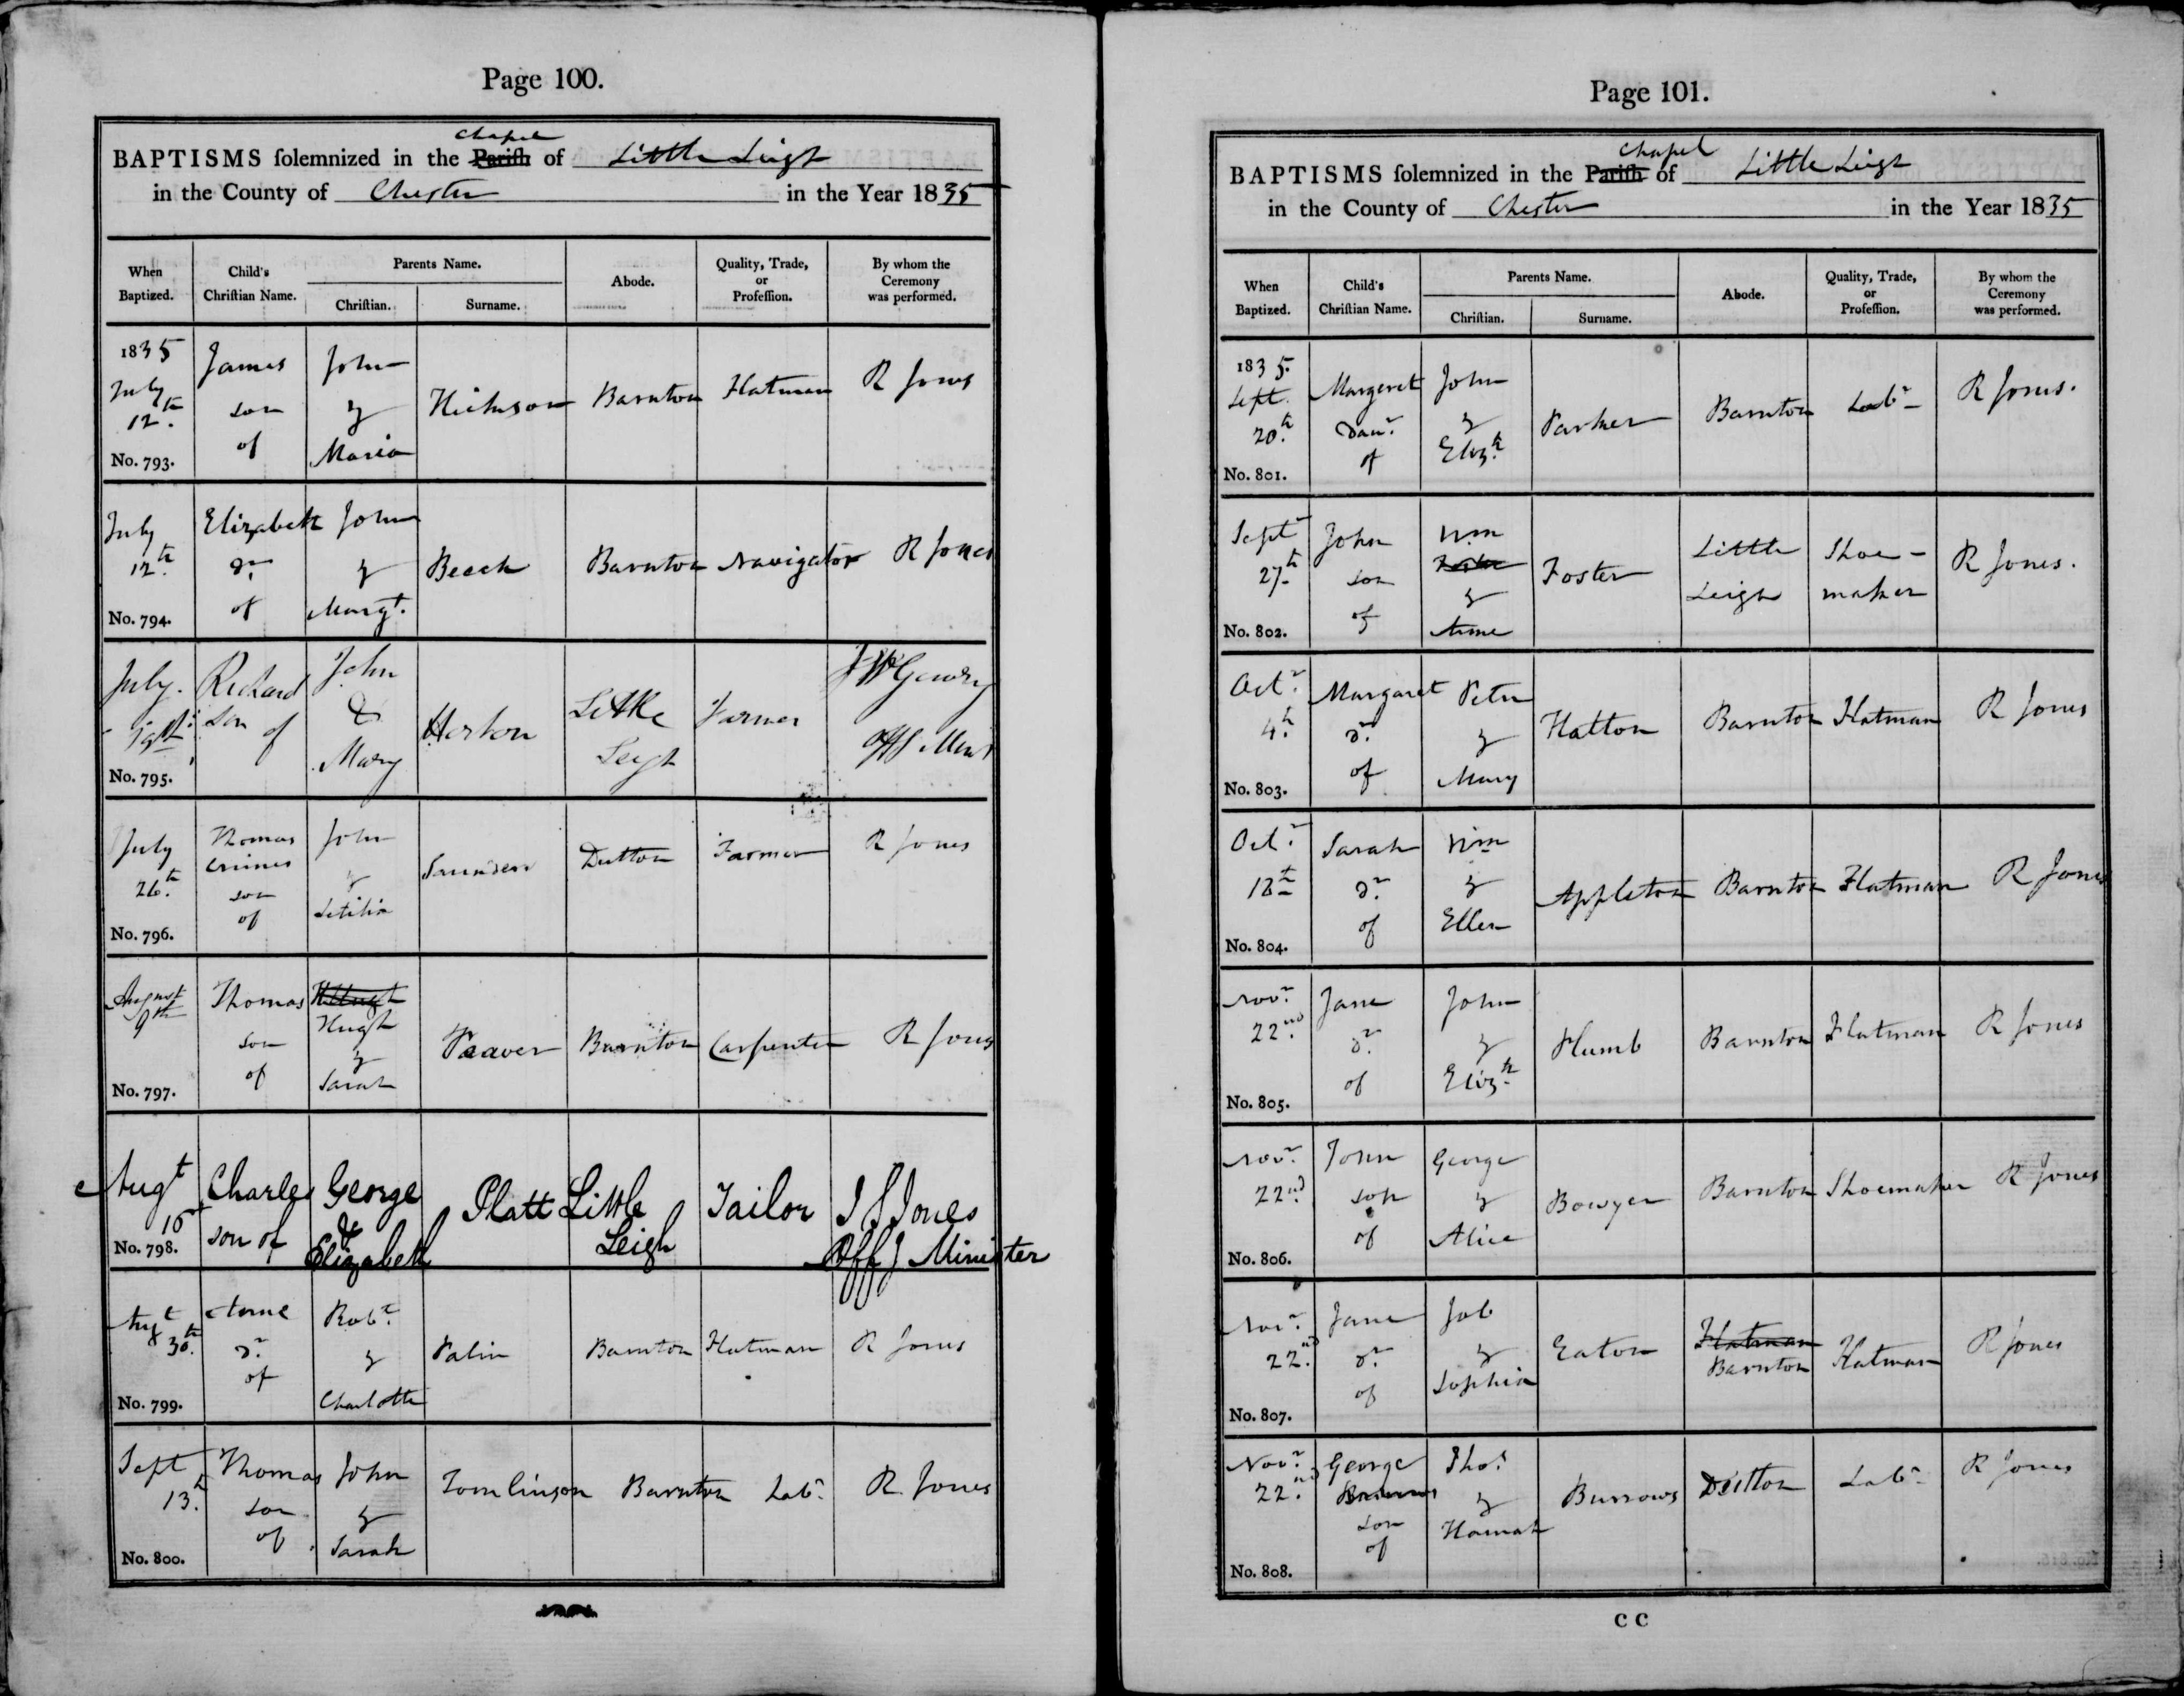 Page 100.
Chapel
BAPTISMS ſolemnized in the Pariſh of Little Leigh
in the County of Chester in the Year 1835
When Baptized. Child's Chriſtian Name. Parents Name. Chriſtian. Surname. Abode. Quality, Trade, or Profeſſion. By whom the Ceremony was performed.
1835 July 12th. No. 793. James son of John & Maria Hickson Barnton Flatman R Jones
July 12th. No. 794. Elizabeth Dr. of John & Margt. Beech Barnton Navigator R Jones
July 19th. No. 795. Richard Son of John & Mary Horton Little Leigh Farmer Off. Minr
July 26th. No. 796. Thomas Crimes son of John & Letitia Saunders Dutton Farmer R Jones
August 9th No. 797. Thomas son of Hugh & Sarah Peaver Barnton Carpenter R Jones
Augt 16th No. 798. Charles son of George & Elizabeth Platt Little Leigh Tailor J S Jones Offg Minister
Augt 30th. No. 799. Anne Dr. of Robt. & Charlotte Palin Barnton Flatman R Jones
Sept 13th. No. 800. Thomas son of John & Sarah Tomlinson Barnton Labr. R Jones
Page 101.
Chapel
BAPTISMS ſolemnized in the Pariſh of Little Leigh
in the County of Chester in the Year 1835
When Baptized. Child's Chriſtian Name. Parents Name. Chriſtian. Surname. Abode. Quality, Trade, or Profeſſion. By whom the Ceremony was performed.
1835. Sept. 20th. No. 801. Margaret Daur. of John & Elizth. Parker Barnton Labr R Jones.
Sepr 27th. No. 802. John son of Wm Foster & Anne Foster Little Leigh Shoe-maker R Jones.
Octr. 4th. No. 803. Margaret Dr. of Peter & Mary Hatton Barnton Flatman R Jones
Octr. 18th No. 804. Sarah Dr. of Wm & Ellen Appleton Barnton Flatman R Jones
Novr. 22nd. No. 805. Jane Dr. of John & Elizth. Plumb Barnton Flatman R Jones
Novr. 22nd. No. 806. John son of George & Alice Bowyer Barnton Shoemaker R Jones
Novr. 22nd. No. 807. Jane Dr. of Job & Sophia Eaton Flatman Barnton Flatman R Jones
Novr. 22nd. No. 808. George Burrows son of Thos. & Hannah Burrows Dutton Labr R Jones
C C